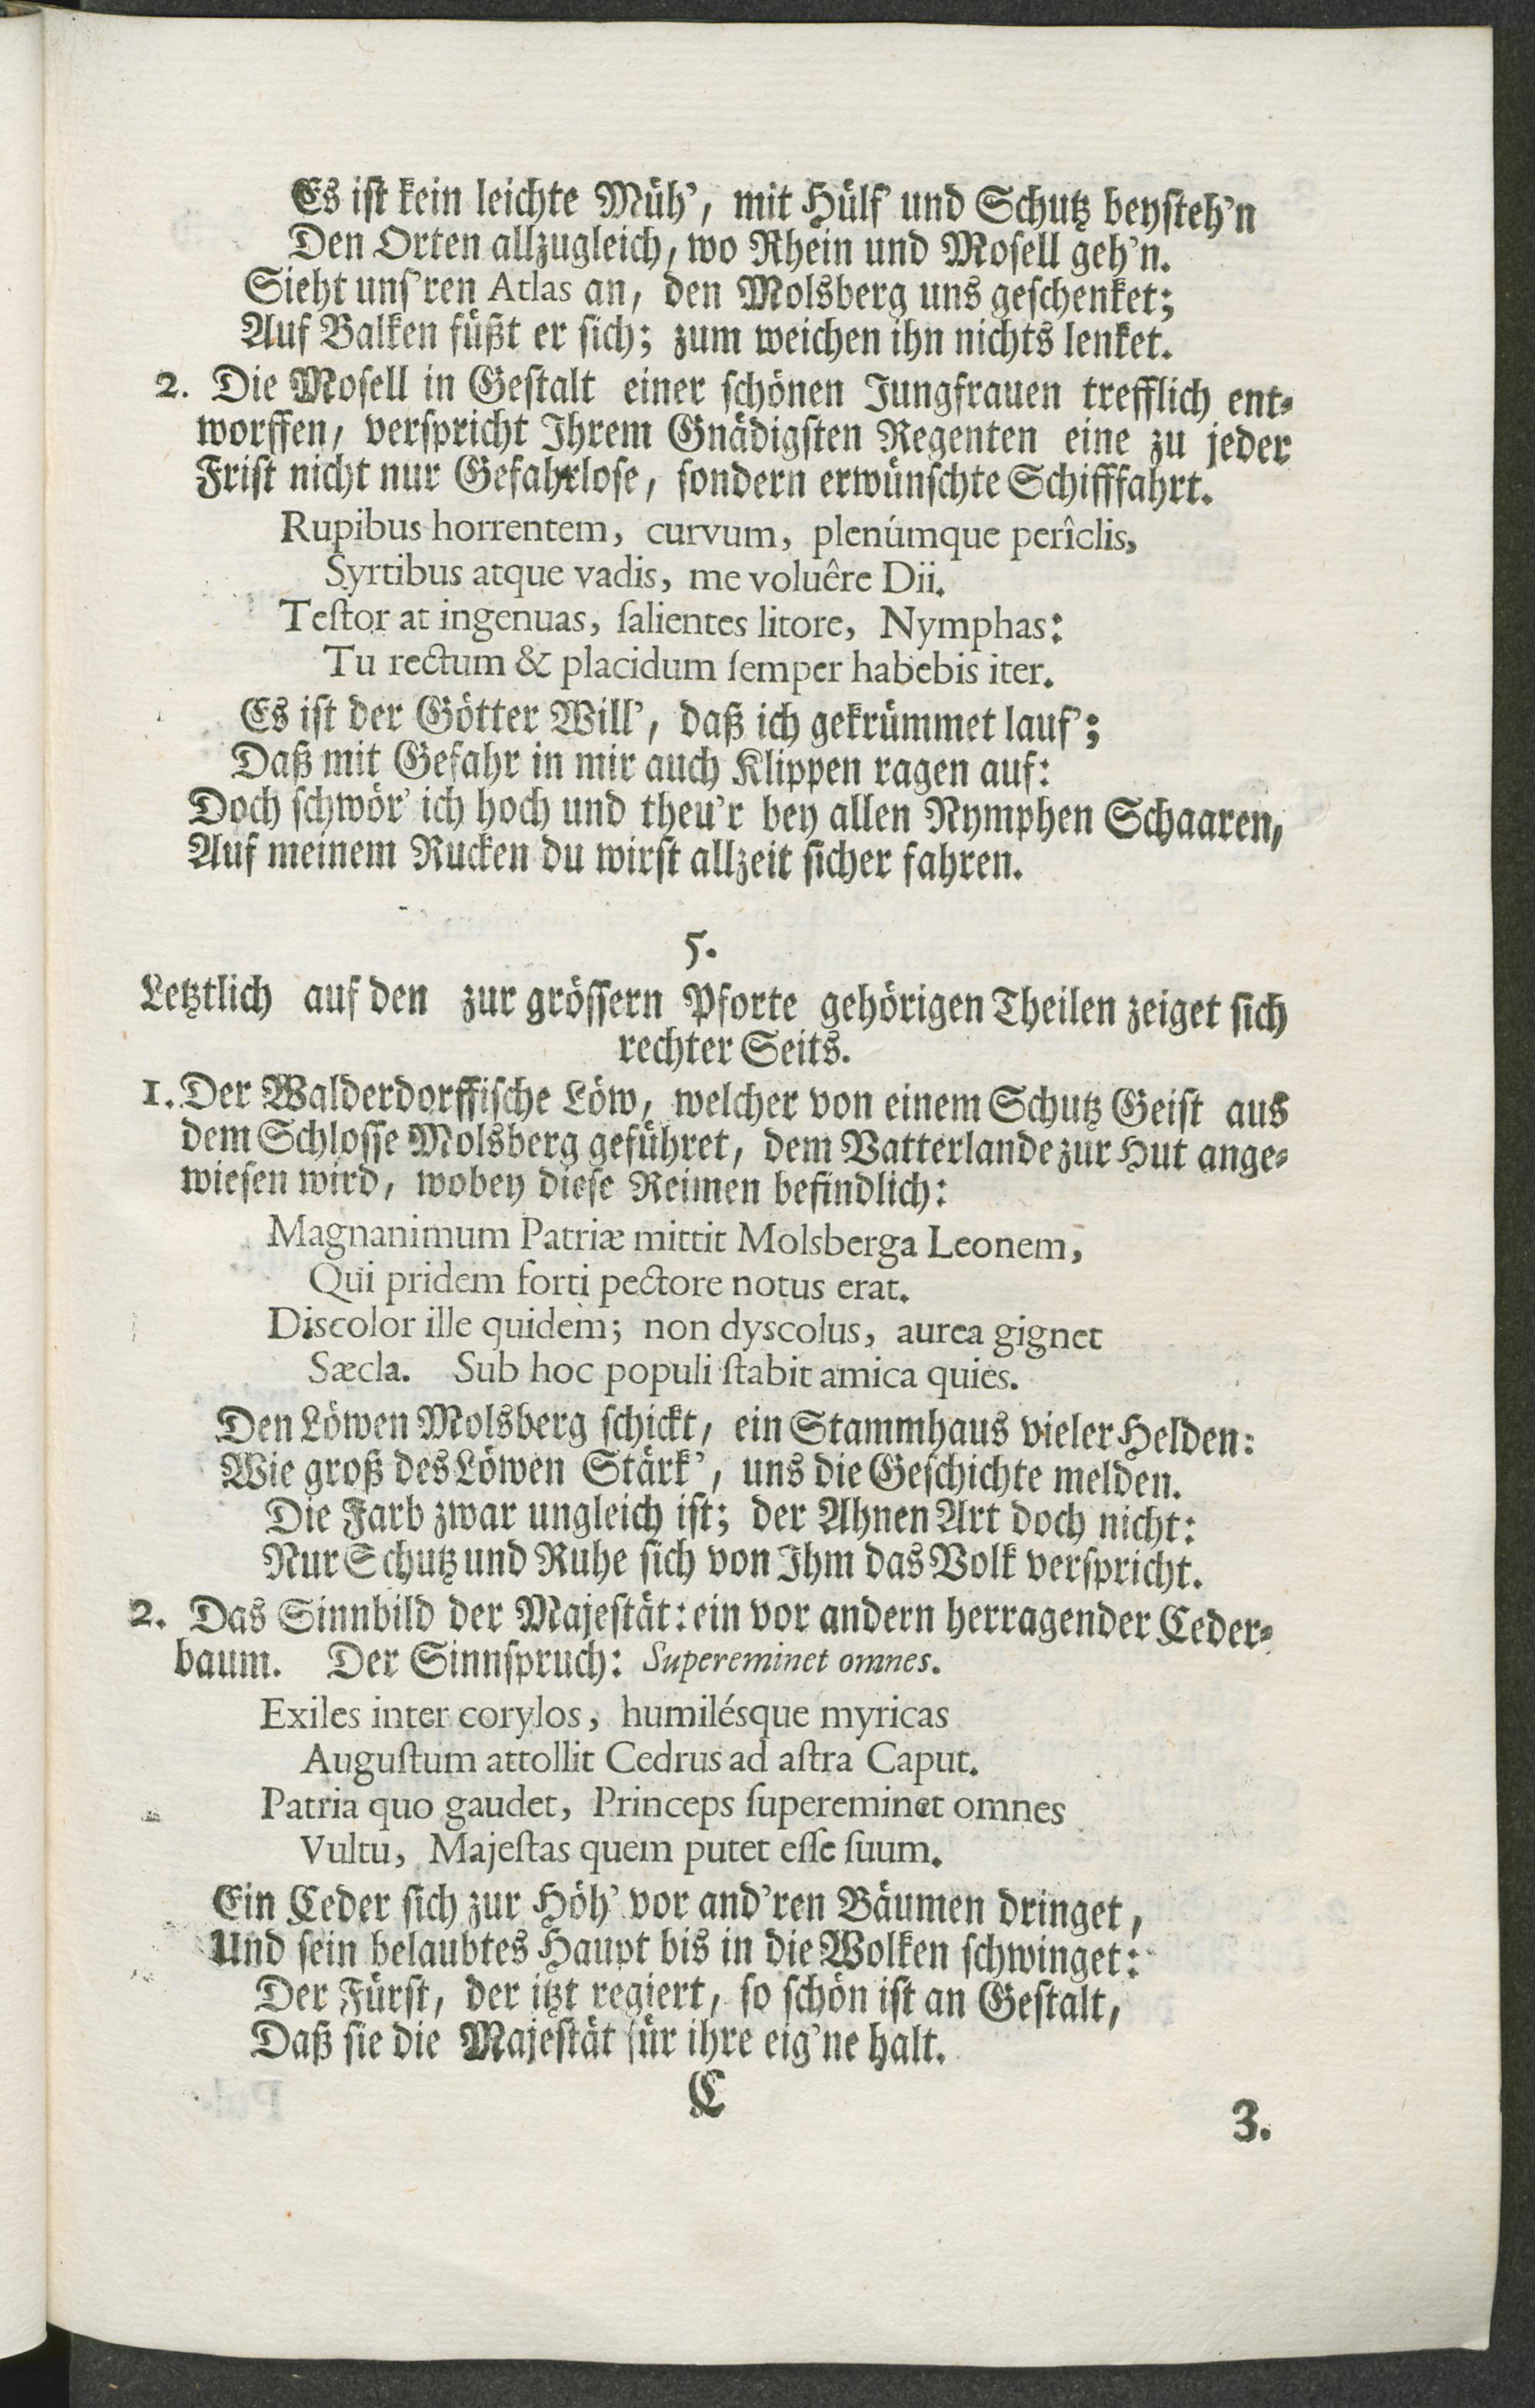 Es ist kein leichte Müh’, mit Hülf’ und Schutz beysteh’n
Den Orten allzugleich, wo Rhein und Mosell geh’n.
Sieht uns’ren Atlas an, den Molsberg uns geschenket;
Auf Balken füßt er sich; zum weichen ihn nichts lenket.
2. Die Mosell in Gestalt einer schönen Jungfrauen trefflich ent-
worffen, verspricht Ihrem Gnädigsten Regenten eine zu jeder
Frist nicht nur Gefahrlose, sondern erwünschte Schifffahrt.
Rupibus horrentem, curvum, plenúmque perîclis,
Syrtibus atque vadis, me voluêre Dii.
Teſtor at ingenuas, ſalientes litore, Nymphas:
Tu rectum & placidum ſemper habebis iter.
Es ist der Götter Will’, daß ich gekrümmet lauf’;
Daß mit Gefahr in mir auch Klippen ragen auf:
Doch schwör’ ich hoch und theu’r bey allen Nymphen Schaaren,
Auf meinem Rucken du wirst allzeit sicher fahren.
5.
Letztlich auf den zur grössern Pforte gehörigen Theilen zeiget sich
rechter Seits.
1. Der Walderdorffische Löw, welcher von einem Schutz Geist aus
dem Schlosse Molsberg geführet, dem Vatterlande zur Hut ange-
wiesen wird, wobey diese Reimen befindlich:
Magnanimum Patriæ mittit Molsberga Leonem,
Qui pridem forti pectore notus erat.
Discolor ille quidem; non dyscolus, aurea gignet
Sæcla. Sub hoc populi ſtabit amica quies.
Den Löwen Molsberg schickt, ein Stammhaus vieler Helden:
Wie groß des Löwen Stärk’, uns die Geschichte melden.
Die Farb zwar ungleich ist; der Ahnen Art doch nicht:
Nur Schutz und Ruhe sich von Ihm das Volk verspricht.
2. Das Sinnbild der Majestät: ein vor andern herragender Ceder-
baum. Der Sinnspruch: Supereminet omnes.
Exiles inter corylos, humilésque myricas
Auguſtum attollit Cedrus ad aſtra Caput.
Patria quo gaudet, Princeps ſupereminet omnes
Vultu, Majeſtas quem putet eſſe ſuum.
Ein Ceder sich zur Höh’ vor and’ren Bäumen dringet,
Und sein belaubtes Haupt bis in die Wolken schwinget:
Der Fürst, der itzt regiert, so schön ist an Gestalt,
Daß sie die Majestät für ihre eig’ne halt.
C
3.